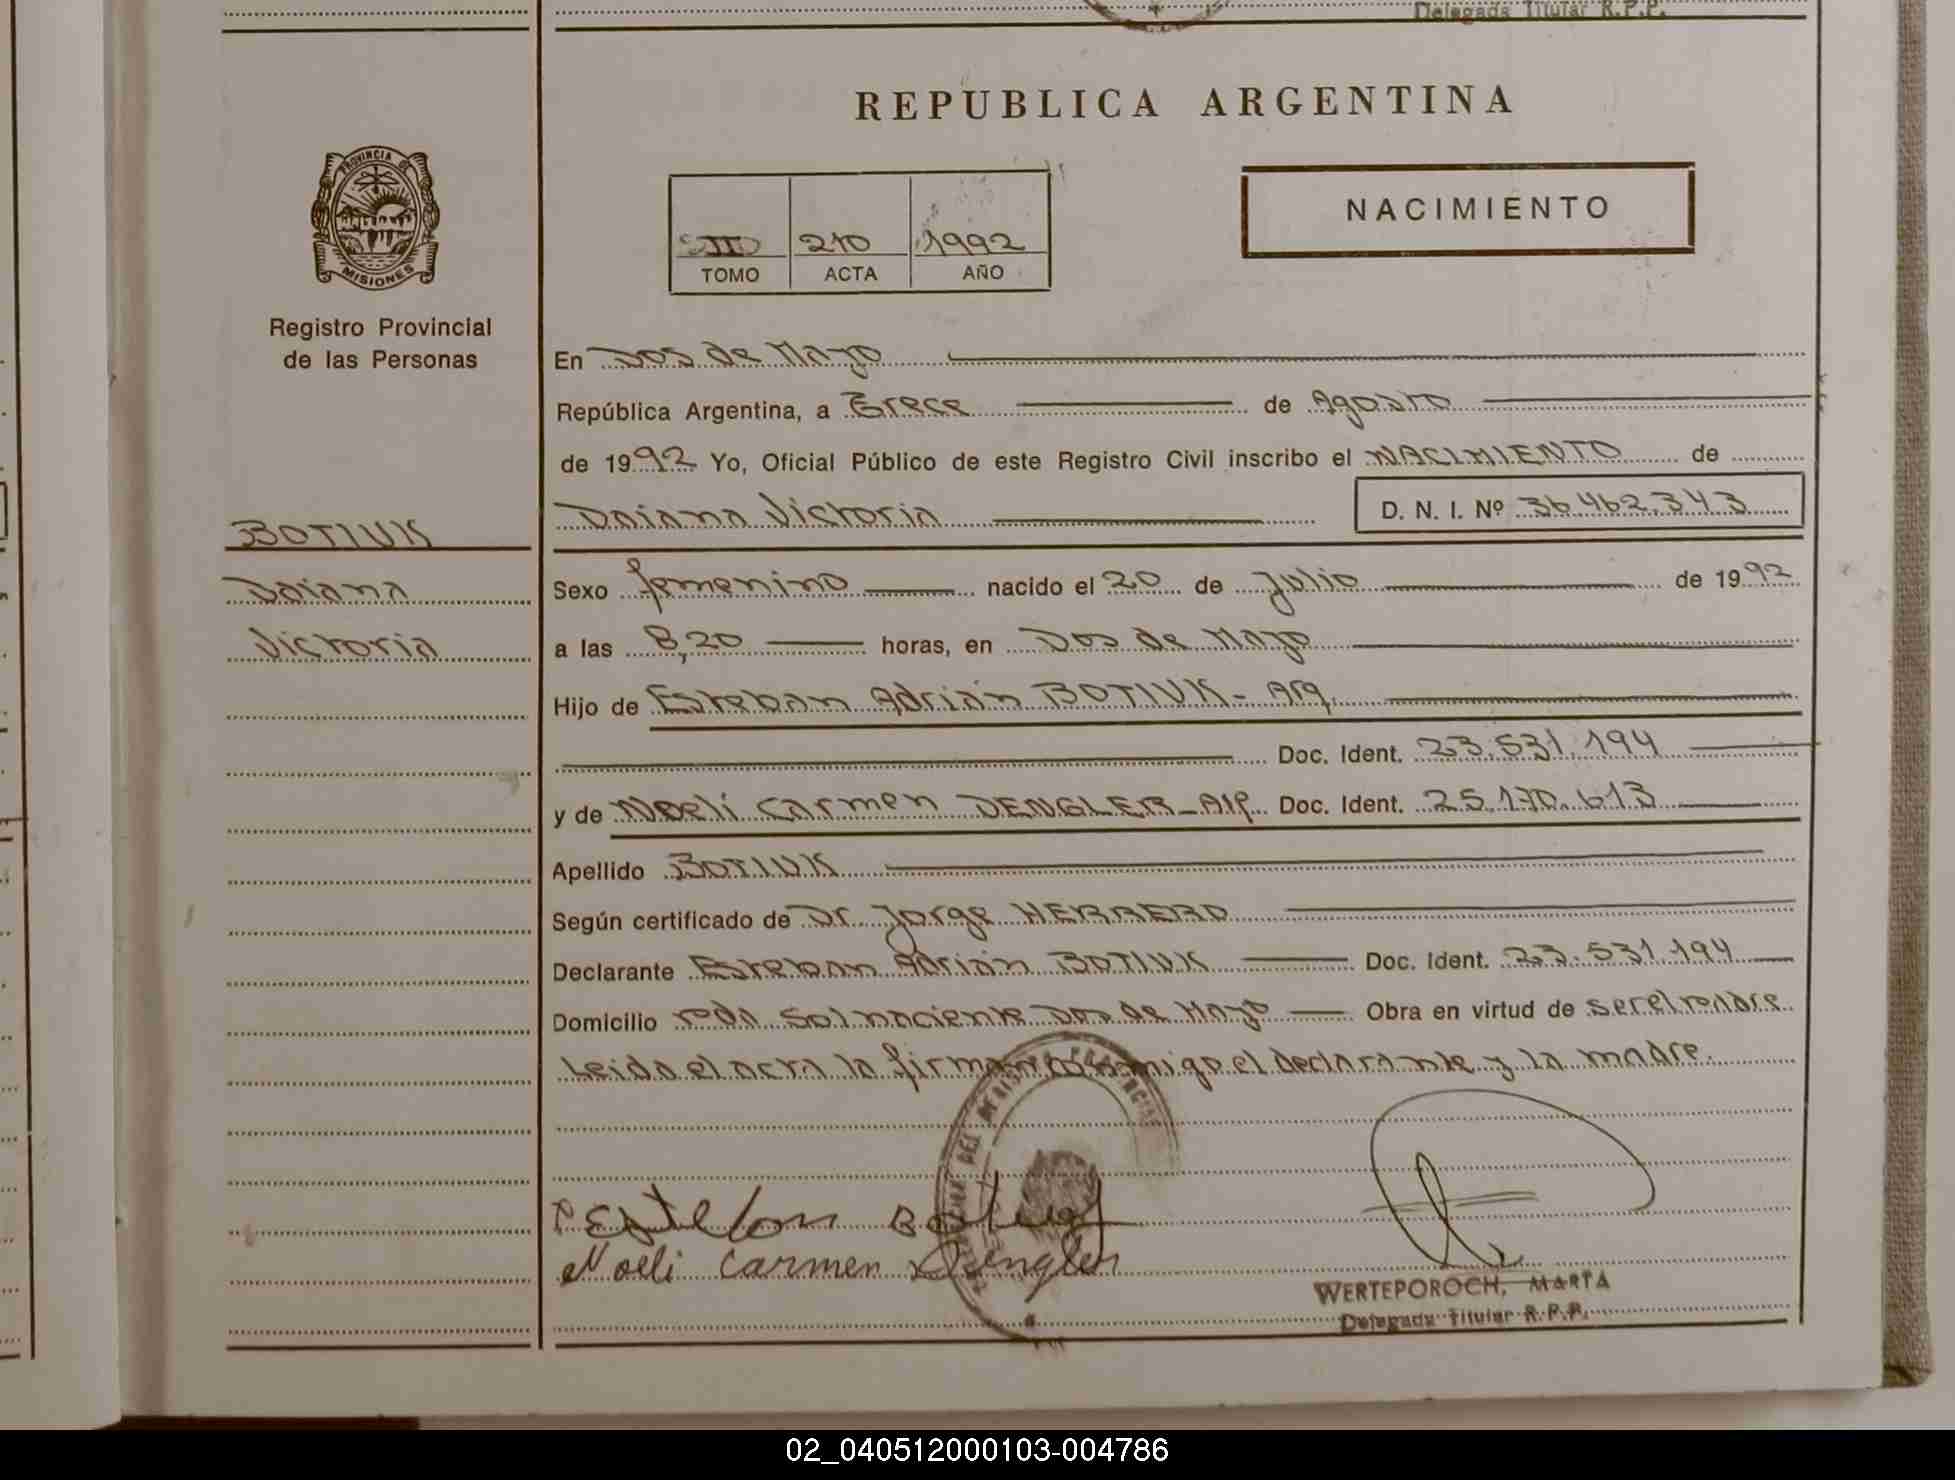 Delegada Titular R.P.P.
REPUBLICA ARGENTINA
PROVINCIA DE
MISIONES
Registro Provincial
de las Personas
210 1992
TOMO ACTA AÑO
NACIMIENTO
En Dos de Mayo
República Argentina, a Trece de Agosto
de 1992 Yo, Oficial Público de este Registro Civil inscribo el NACIMIENTO de
Daiana Victoria D. N. I. Nº 36462.343
BOTIUK
Daiana
Victoria
Sexo femenino nacido el 20 de Julio de 1992
a las 8,20 horas, en Dos de Mayo
Hijo de Esteban Adrián BOTIUK - Arg.
Doc. Ident. 23.531.194
y de Noeli Carmen DENGLER - Arg. Doc. Ident. 25.170.613
Apellido BOTIUK
Según certificado de Dr. Jorge HERRERO
Declarante Esteban Adrián BOTIUK Doc. Ident. 23.531.194
Domicilio rcda Sol naciente Dos de Mayo Obra en virtud de ser el padre.
Leida el acta la firman conmigo el declarante y la madre.
Noeli Carmen Dengler
WERTEPOROCH, MARTA
Delegada Titular R.P.P.
02_040512000103-004786